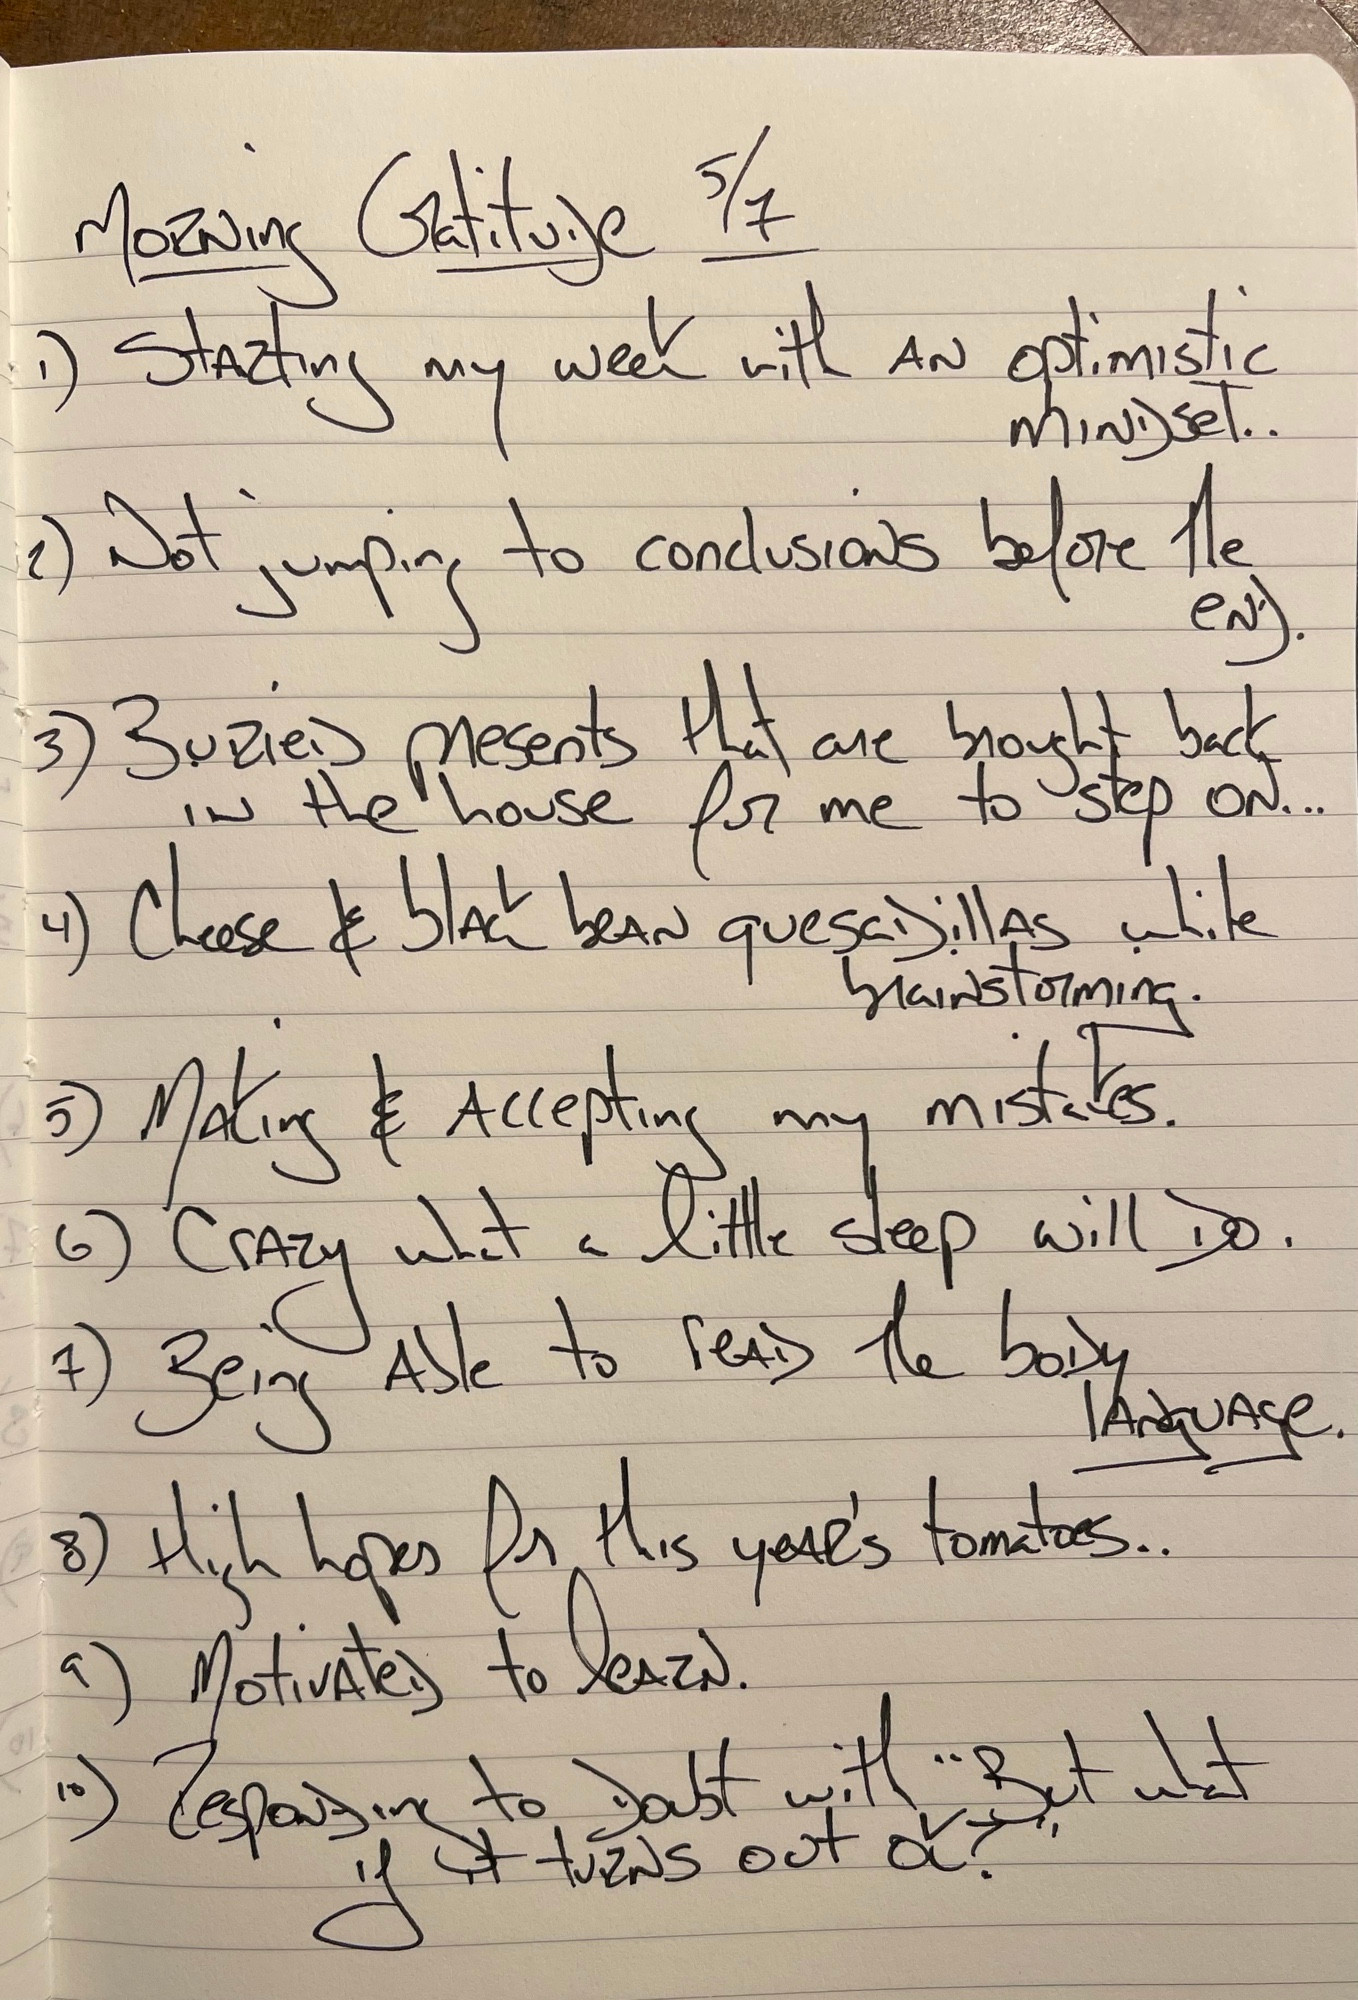 Morning Gratitude 5/7
1) Starting my week with an optimistic
mindset..
2) Not jumping to conclusions before the
end.
3) Buried presents that are brought back
in the house for me to step on...
4) Cheese & black bean quesadillas while
brainstorming.
5) Making & Accepting my mistakes.
6) Crazy what a little sleep will do.
7) Being Able to read the body
language.
8) High hopes for this year's tomatoes..
9) Motivated to learn.
10) Responding to doubt with "But what
if it turns out ok?"